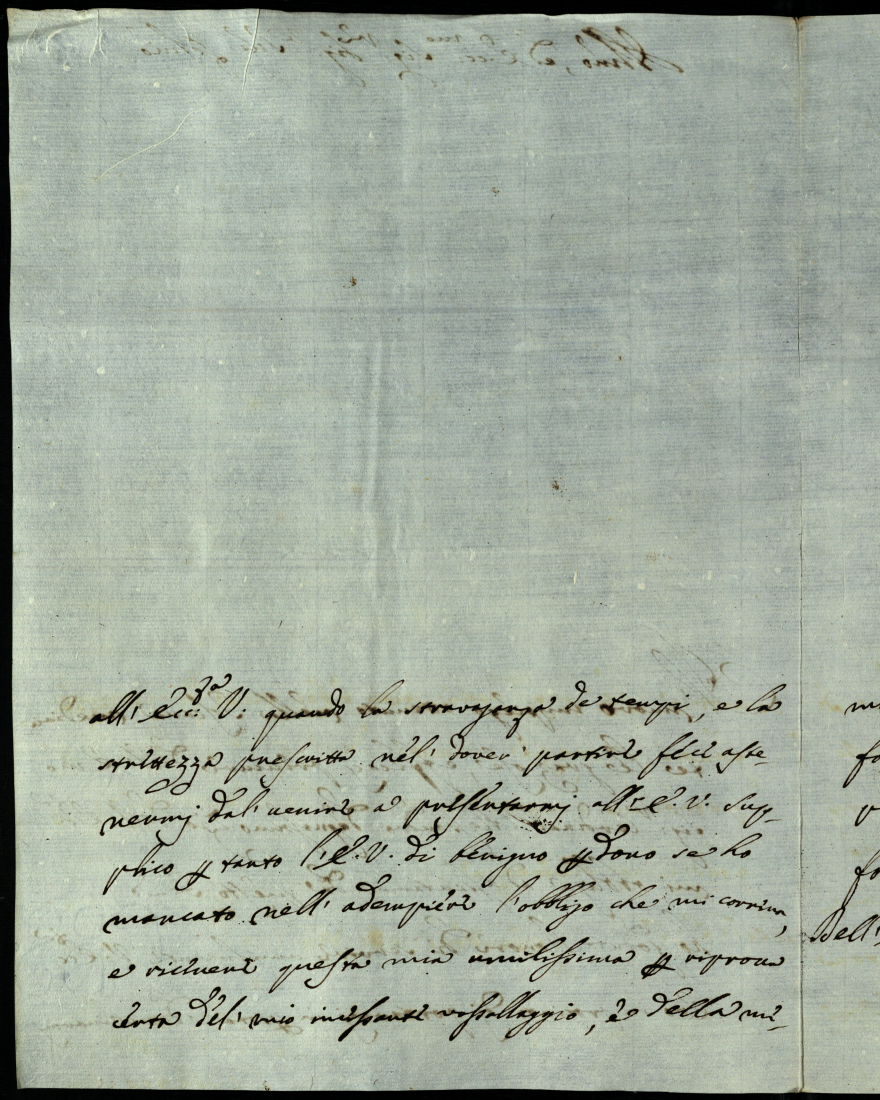 all' Ecc:za V: quando la stravaganza de tempi, e la
strettezza prescritta nel' dover' partire feci aste-
nermj dal' venire a presentarmj all' E. V. sup-
plico p tanto l' E. V. di benigno pdono se ho
mancato nell' adempiere l'obbligo che mi correva,
e ricevere questa mia umilissima p riprova
certa del' mio incessante vassallaggio, e della mi-